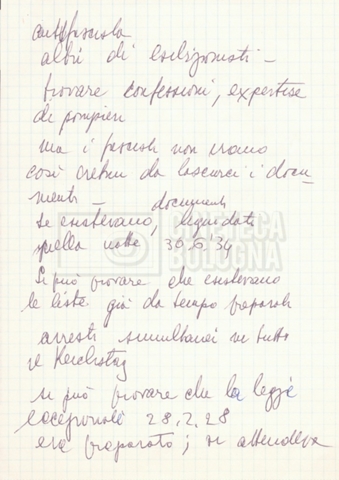 antifascista
alibi di collizionisti –
provare confessioni, expertise
di pompieri
ma i fascisti non erano
così cretini da lasciarci i docu-
menti – documenti
se esistevano, liquidati
quella notte 30.6.34
CINETECA
BOLOGNA
Si può provare che esistevano
le liste già da tempo preparate
arresti simultanei in tutto
il Reichstag
si può provare che la legge
eccezionale 28.2.28
era preparata; si attendeva